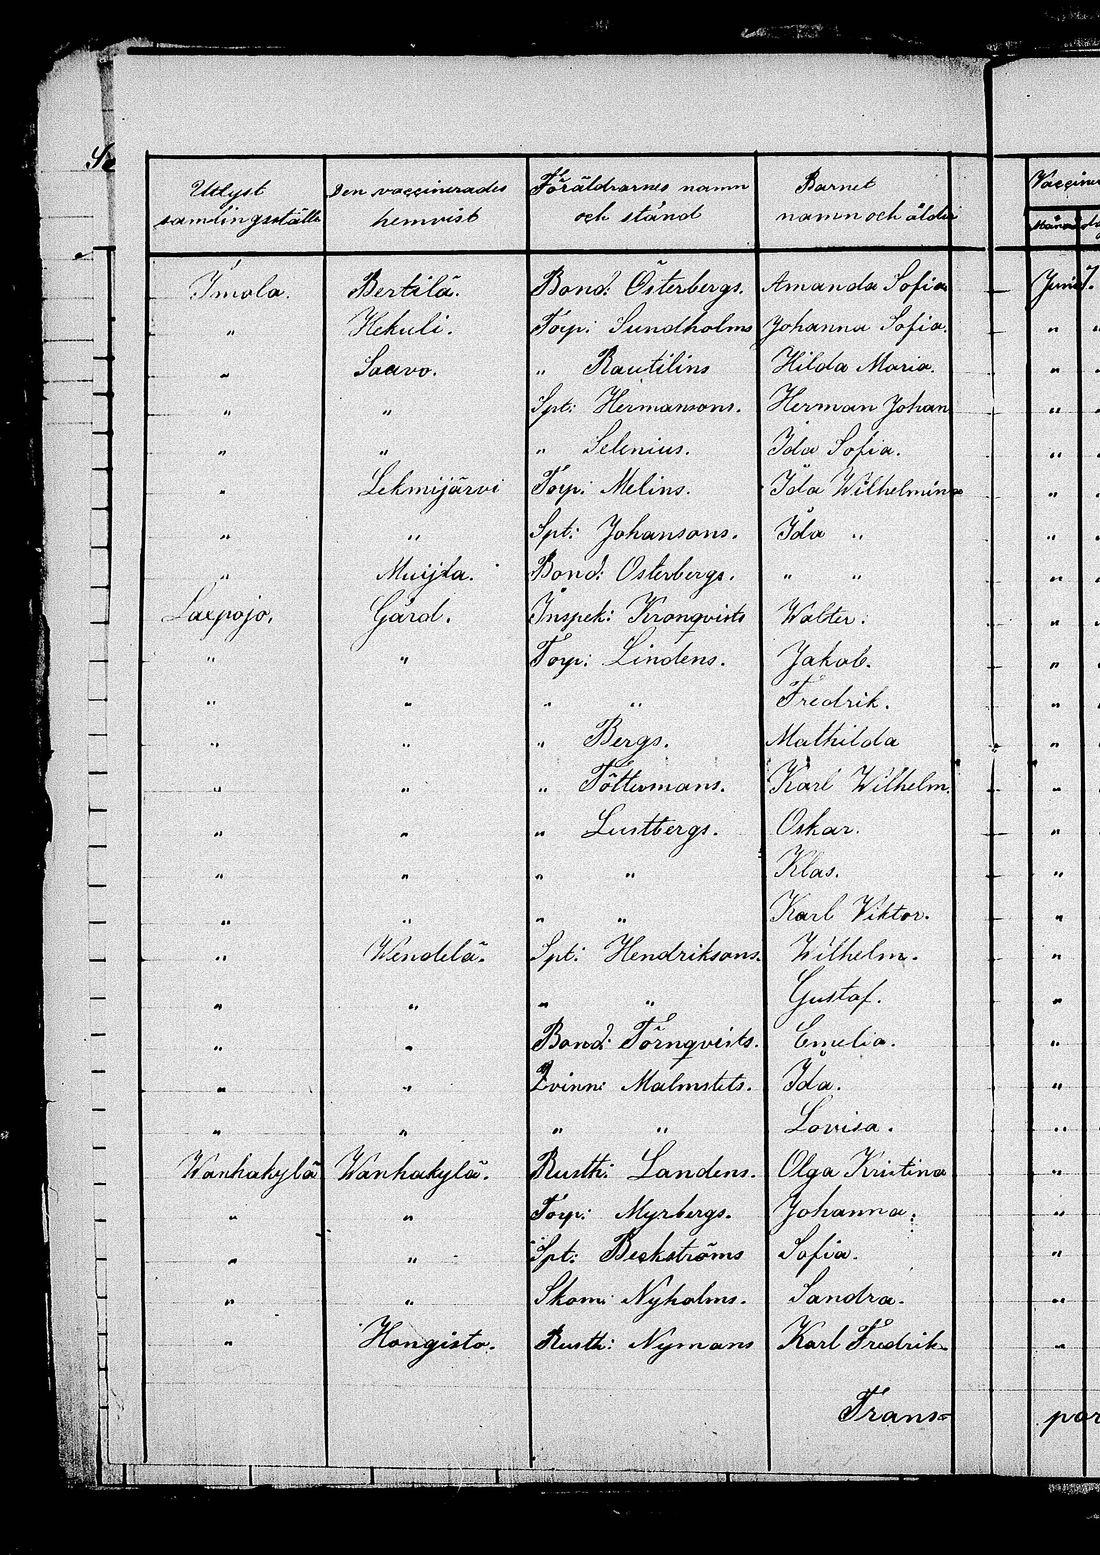 Utlyst samlingsställe Den vaccinerades hemvist Föräldrarnes namn och stånd Barnet namn och ålder Vacciner Månad
Imola. Bertilä. Bond: Österbergs. Amanda Sofia Juni 7.
" Hekuli. Torp: Sundholms Johanna Sofia. " "
" Saavo. " Rautilins Hilda Maria. " "
" " Spt: Hermansons. Herman Johan " "
" " " Selenius. Ida Sofia. " "
" Lekmijärvi Torp: Melins. Ida Wilhelmina " "
" " Spt: Johansons. Ida " " "
" Muijla. Bond: Österbergs. " " " "
Laxpojo. Gård. Inspek: Kronqvists Walter. " "
" " Torp: Lindens. Jakob. " "
" " " " Fredrik. " "
" " " Bergs. Mathilda " "
" " " Töttermans. Karl Wilhelm. " "
" " " Lustbergs. Oskar. "
" " " " Klas. "
" " " " Karl Viktor. "
" Wendelä. Spt: Hendriksons. Wilhelm. "
" " " " Gustaf. "
" " Bond: Törnqvists. Emelia. "
" " Qvinn: Malmstets. Ida. "
" " " " Lovisa. "
Wanhakylä Wanhakylä. Rusth: Landens. Olga Kristina "
" " Torp: Myrbergs. Johanna. "
" " Spt: Beckströms Sofia. "
" " Skom: Nyholms. Sandra. "
" Hongisto. Rusth: Nymans Karl Fredrik "
Trans= por